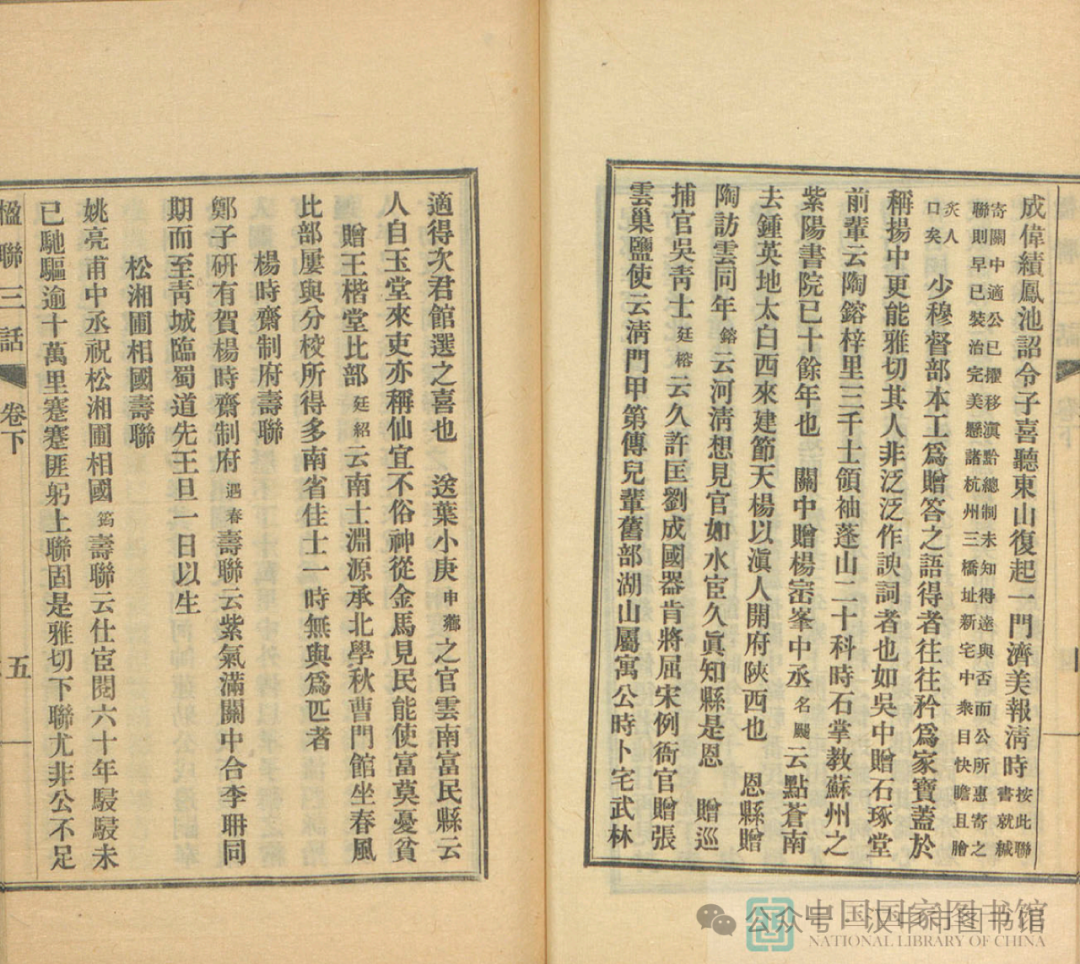 成偉績鳳池詔令子喜聽東山復起一門濟美報淸時按此聯書就緘
寄關中適公已擢移滇黔總制未知得達與否而公所惠寄之
聯則早已裝治完美懸諸杭州三橋址新宅中衆目快瞻且膾
炙人口矣 少穆督部本工爲贈答之語得者往往矜爲家寶蓋於
稱揚中更能雅切其人非泛泛作諛詞者也如吳中贈石琢堂
前輩云陶鎔梓里三千士領袖蓬山二十科時石掌教蘇州之
紫陽書院已十餘年也 關中贈楊宻峯中丞名颺云點蒼南
去鍾英地太白西來建節天楊以滇人開府陝西也 恩縣贈
陶訪雲同年鎔云河淸想見官如水宦久眞知縣是恩 贈巡
捕官吳靑士廷榕云久許匡劉成國器肯將屈宋例衙官贈張
雲巢鹽使云淸門甲第傳兒輩舊部湖山屬寓公時卜宅武林
適得次君館選之喜也 送葉小庚申薌之官雲南富民縣云
人自玉堂來吏亦稱仙宜不俗神從金馬見民能使富莫憂貧
贈王楷堂比部廷紹云南士淵源承北學秋曹門館坐春風
比部屢與分校所得多南省佳士一時無與爲匹者
楊時齋制府壽聯
鄭子硏有賀楊時齋制府遇春壽聯云紫氣滿關中合李耼同
期而至靑城臨蜀道先王旦一日以生
松湘圃相國壽聯
姚亮甫中丞祝松湘圃相國筠壽聯云仕宦閱六十年駸駸未
已馳驅逾十萬里蹇蹇匪躬上聯固是雅切下聯尤非公不足
楹聯三話 卷下 五
公众号·汉中市图书馆
中国国家图书馆
NATIONAL LIBRARY OF CHINA